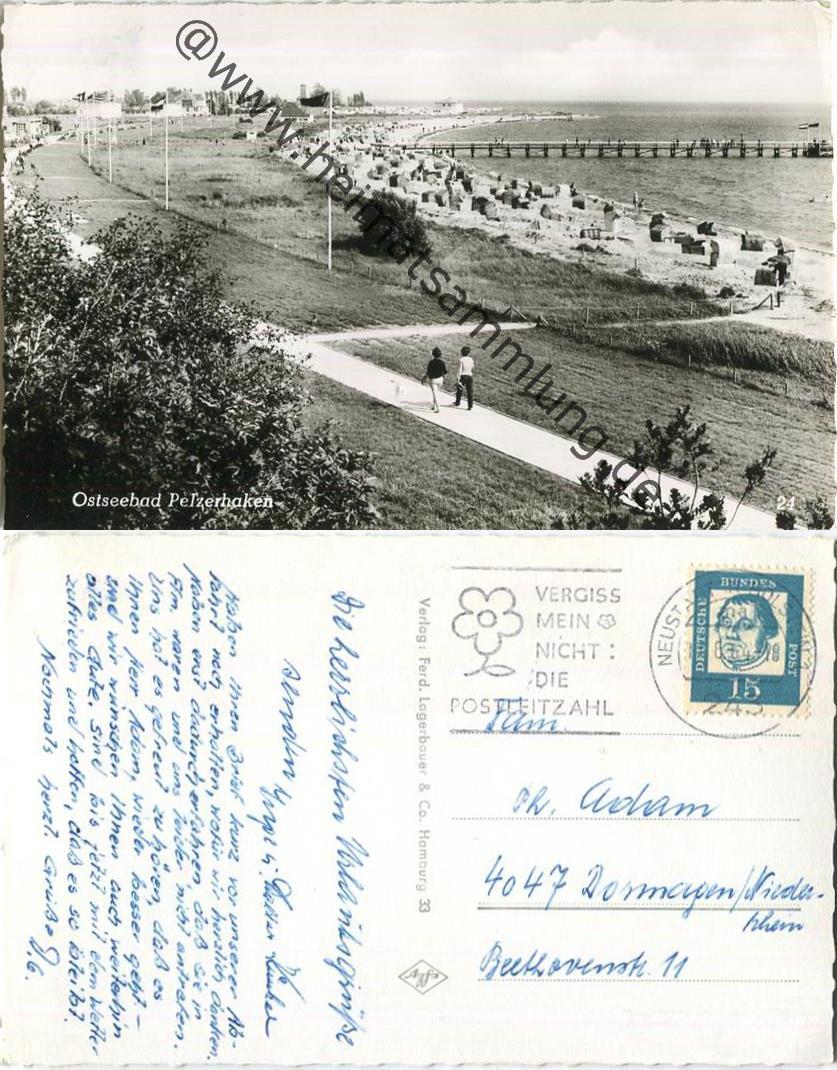 @www.heimatsammlung.de
Ostseebad Pelzerhaken
24
VERGISS
MEIN
NICHT:
DIE
POSTLEITZAHL
NEUST
DEUTSCHE
BUNDES
POST
15
Fam.
Ph. Adam
4047 Dormagen/Nieder-
rhein
Beethovenstr. 11
Verlag: Ferd. Lagerbauer & Co. Hamburg 33
Die herzlichsten Urlaubsgrüße
senden
Haben Ihren Brief kurz vor unserer Ab-
fahrt noch erhalten, wofür wir herzlich danken.
Haben erst dadurch erfahren, daß Sie in
waren und uns leider nicht antrafen.
Uns hat es gefreut zu hören, daß es
Ihnen Herr Adam, wieder besser geht –
und wir wünschen Ihnen auch weiterhin
alles Gute. Sind bis jetzt mit dem Wetter
zufrieden und hoffen, daß es so bleibt.
Nochmals herzl. Grüße